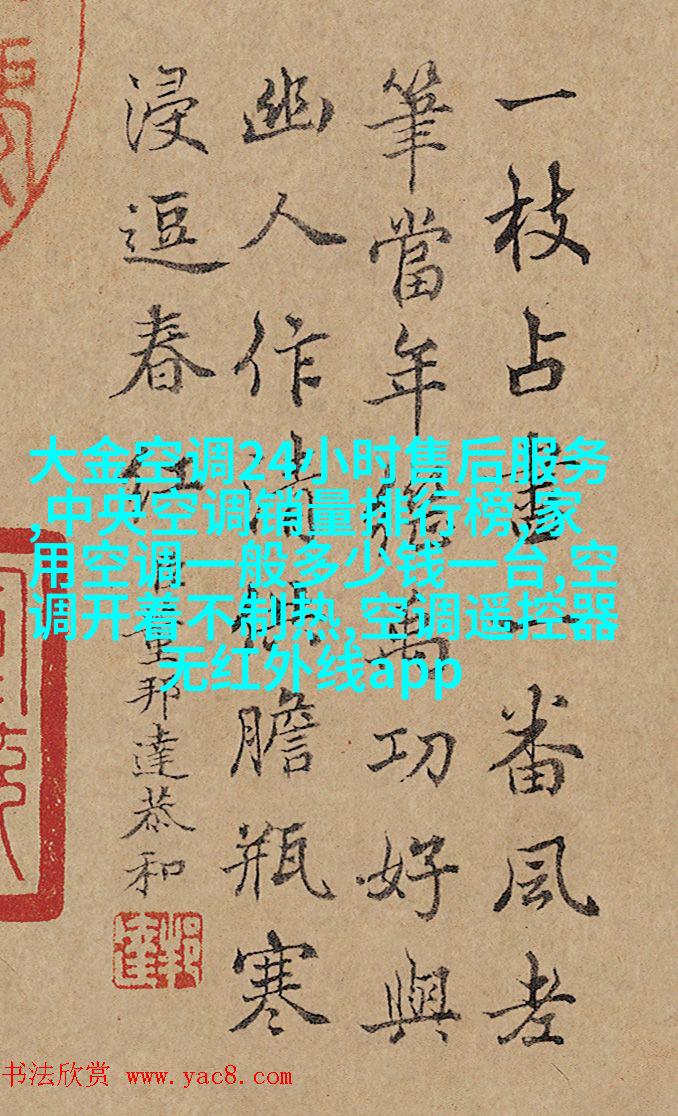 一枝占盡一番風老
筆當年萬功好與
幽人作清供膽瓶寒
浸逗春紅 臣董邦達恭和
大金空调24小时售后服务
,中央空调销量排行榜,家
用空调一般多少钱一台,空
调开着不制热,空调遥控器
无红外线app
书法欣赏 www.yac8.com